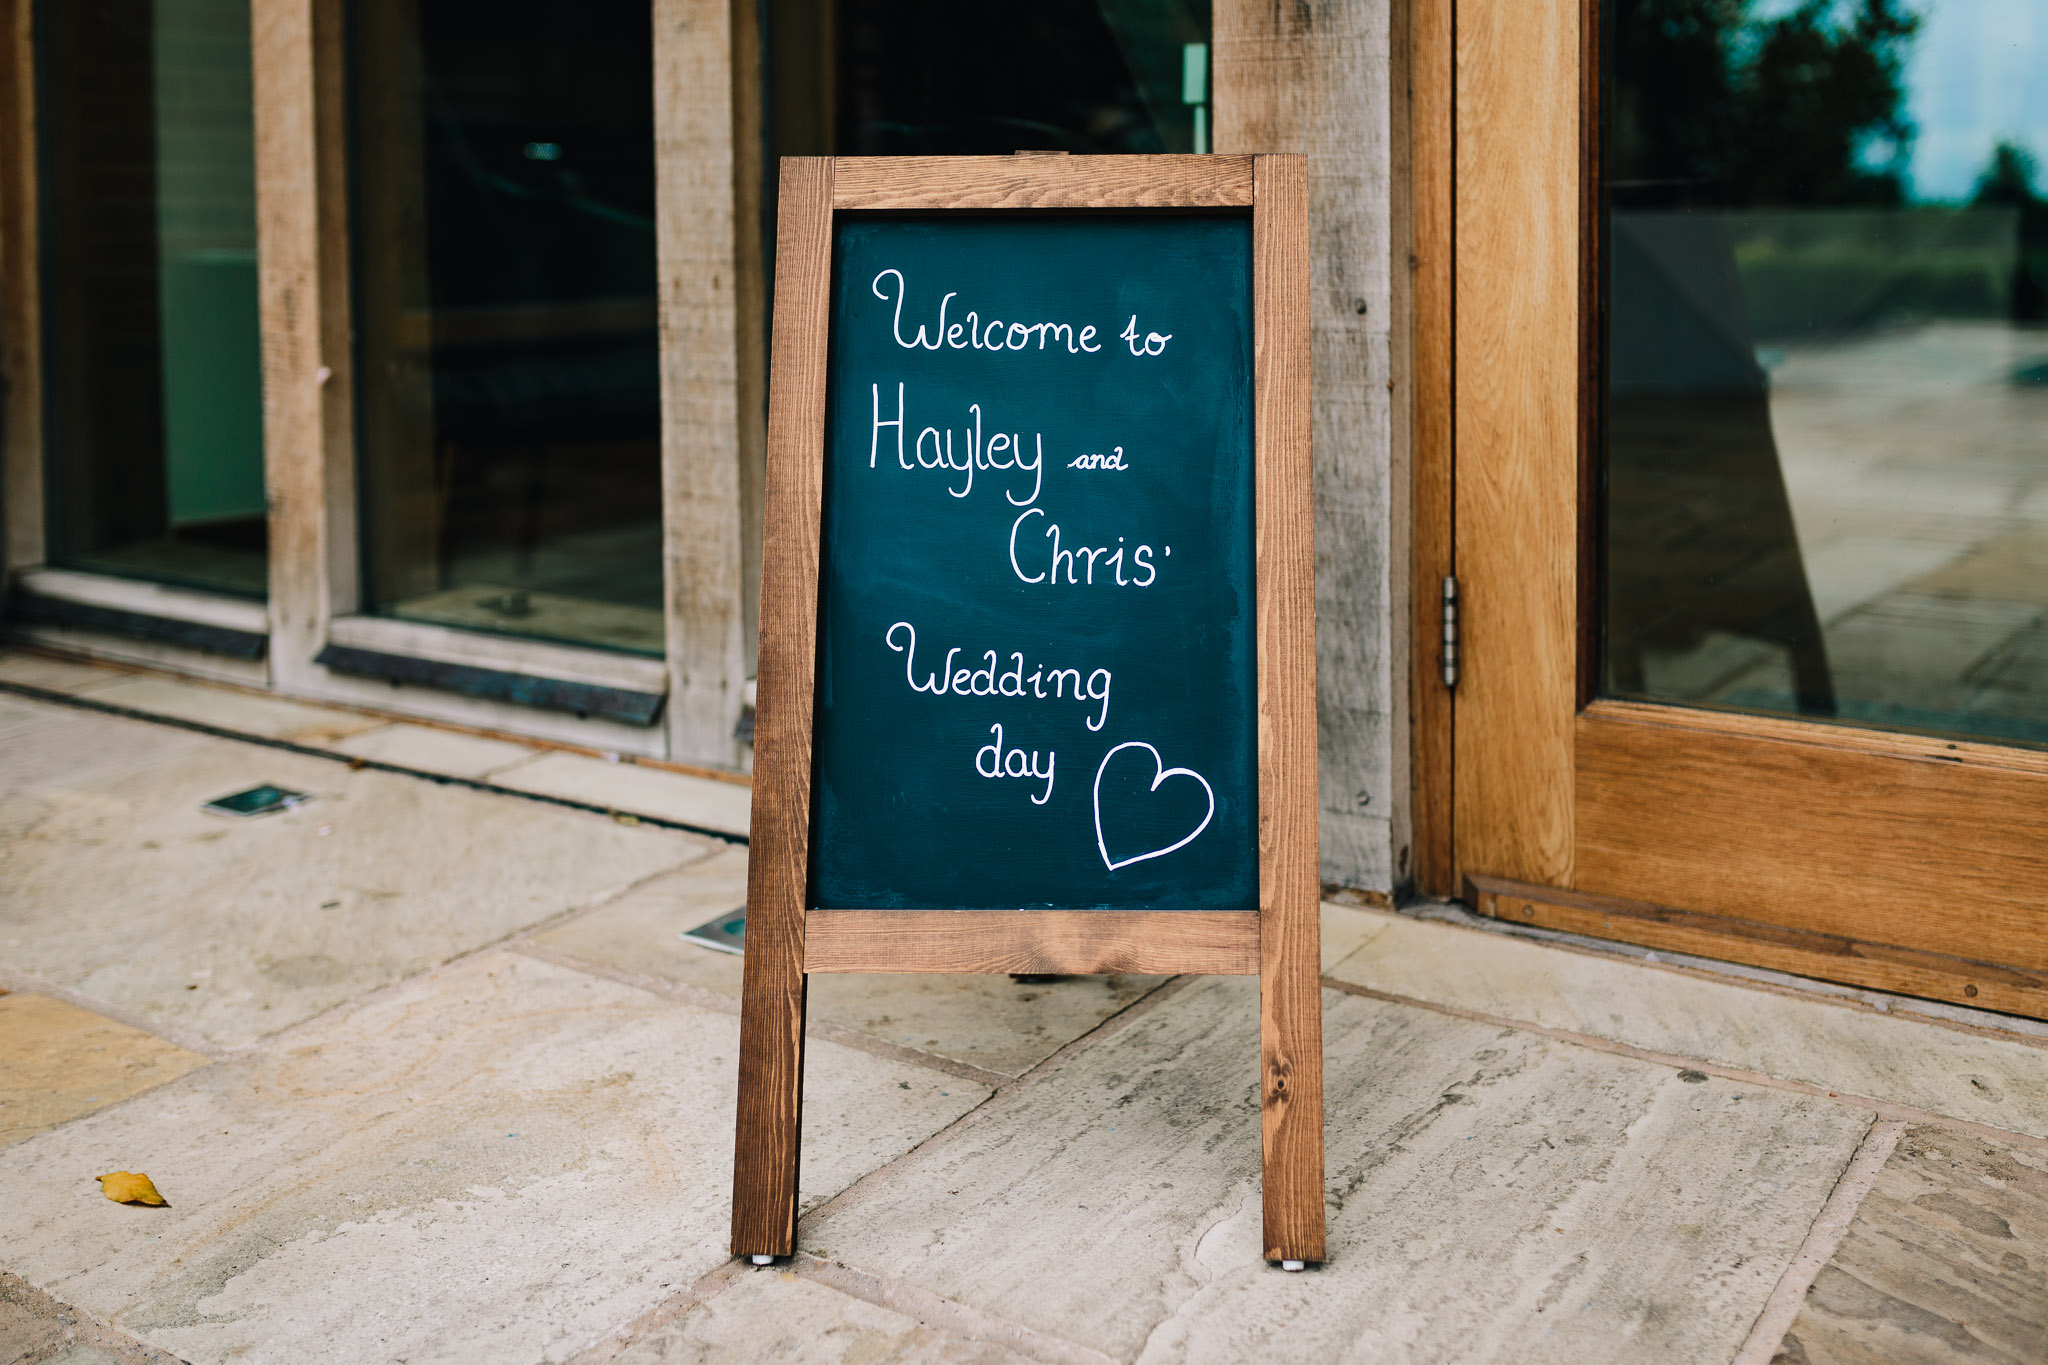 Welcome to
Hayley and
Chris'
Wedding
day